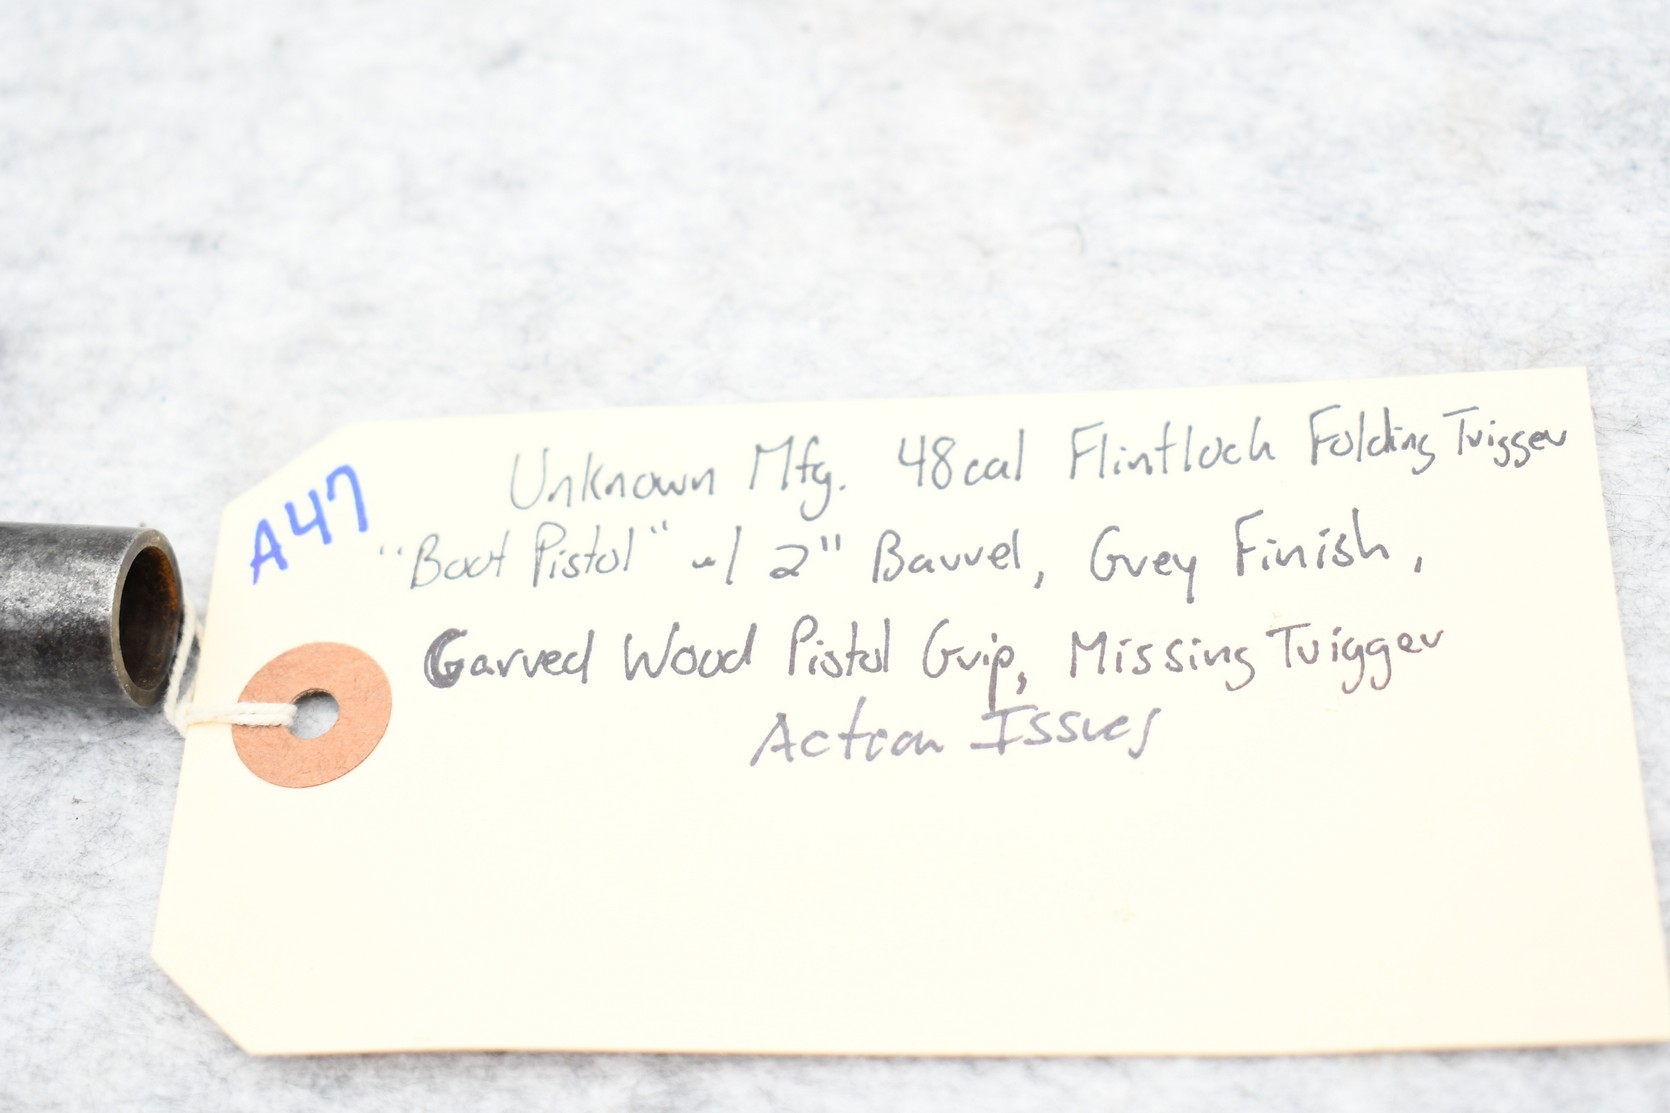 A47
Unknown Mfg. 48cal Flintlock Folding Trigger
"Boot Pistol" w/ 2" Barrel, Grey Finish,
Carved Wood Pistol Grip, Missing Trigger
Action Issues